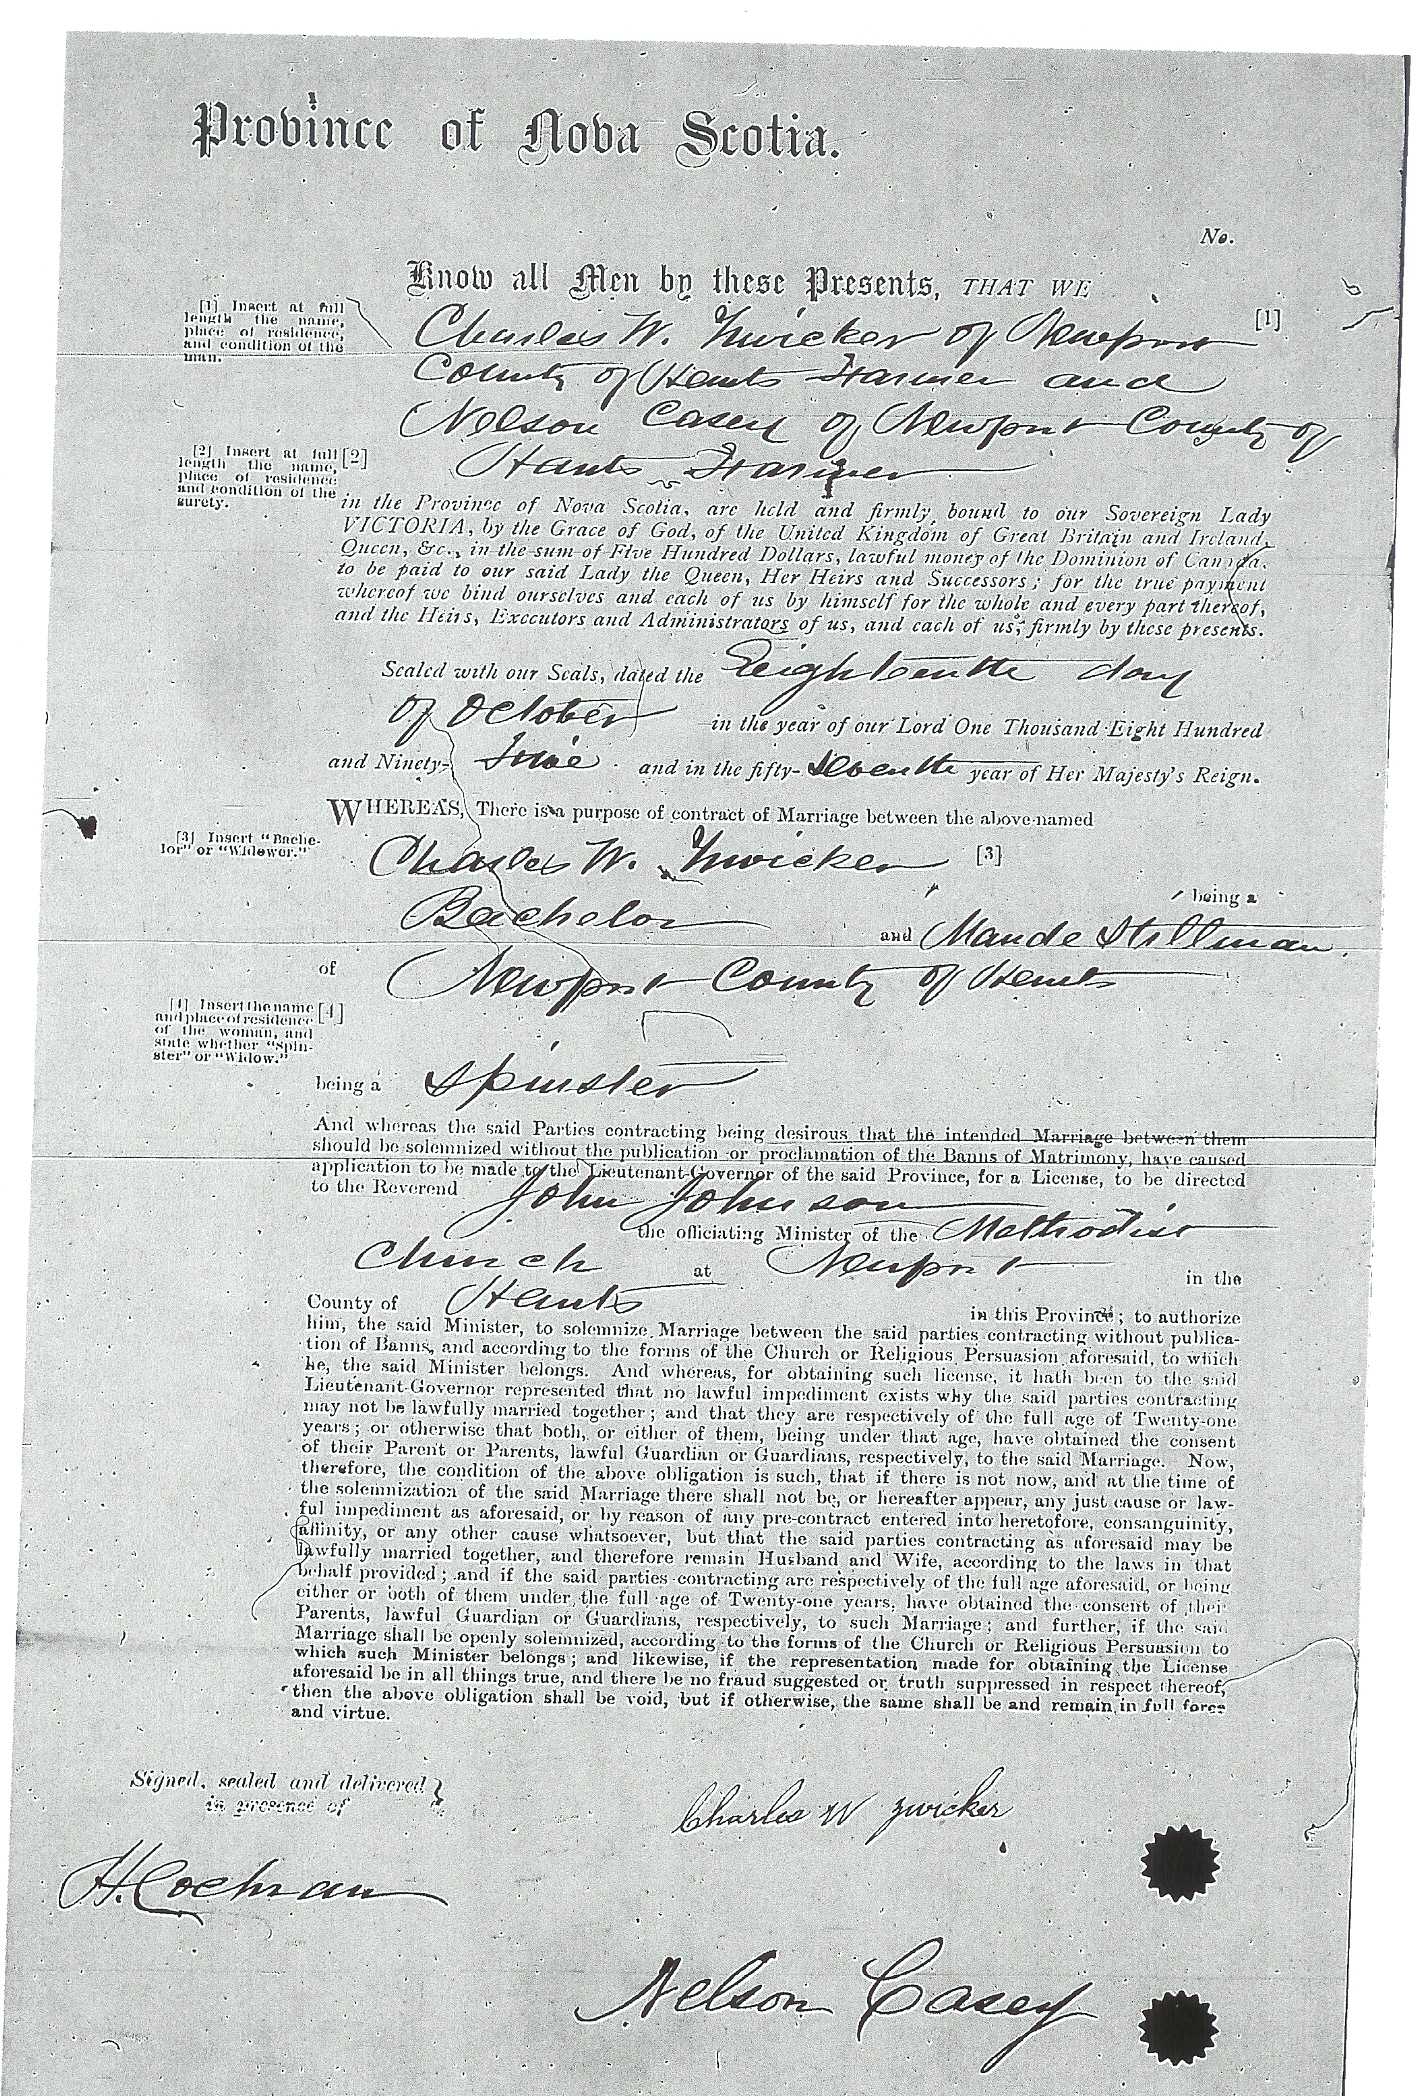 Province of Nova Scotia.
No.
Know all Men by these Presents, THAT WE
[1] Insert at full
length the name,
place of residence,
and condition of the
man.
Charles W. Zwicker of Newport [1]
County of Hants Farmer and
Nelson Casey of Newport County of
[2] Insert at full
length the name,
place of residence
and condition of the
surety.
[2] Hants Farmer
in the Province of Nova Scotia, are held and firmly bound to our Sovereign Lady
VICTORIA, by the Grace of God, of the United Kingdom of Great Britain and Ireland,
Queen, &c., in the sum of Five Hundred Dollars, lawful money of the Dominion of Canada.
to be paid to our said Lady the Queen, Her Heirs and Successors; for the true payment
whereof we bind ourselves and each of us by himself for the whole and every part thereof,
and the Heirs, Executors and Administrators of us, and each of us, firmly by these presents.
Sealed with our Seals, dated the Eighteenth day
of October in the year of our Lord One Thousand Eight Hundred
and Ninety- and in the fifty-seventh year of Her Majesty's Reign.
WHEREAS, There is a purpose of contract of Marriage between the above-named
[3] Insert "Bache-
lor" or "Widower."
Charles W. Zwicker [3]
being a
Bachelor and Maude Stillman
of Newport County of Hants
[4] Insert the name
and place of residence
of the woman, and
state whether "Spin-
ster" or "Widow."
[4]
being a Spinster
And whereas the said Parties contracting being desirous that the intended Marriage between them
should be solemnized without the publication or proclamation of the Banns of Matrimony, have caused
application to be made to the Lieutenant-Governor of the said Province, for a License, to be directed
to the Reverend John Johnson
the officiating Minister of the Methodist
Church at Newport in the
County of Hants in this Province; to authorize
him, the said Minister, to solemnize Marriage between the said parties contracting without publica-
tion of Banns, and according to the forms of the Church or Religious Persuasion aforesaid, to which
he, the said Minister belongs. And whereas, for obtaining such license, it hath been to the said
Lieutenant-Governor represented that no lawful impediment exists why the said parties contracting
may not be lawfully married together; and that they are respectively of the full age of Twenty-one
years; or otherwise that both, or either of them, being under that age, have obtained the consent
of their Parent or Parents, lawful Guardian or Guardians, respectively, to the said Marriage. Now,
therefore, the condition of the above obligation is such, that if there is not now, and at the time of
the solemnization of the said Marriage there shall not be, or hereafter appear, any just cause or law-
ful impediment as aforesaid, or by reason of any pre-contract entered into heretofore, consanguinity,
affinity, or any other cause whatsoever, but that the said parties contracting as aforesaid may be
lawfully married together, and therefore remain Husband and Wife, according to the laws in that
behalf provided; and if the said parties contracting are respectively of the full age aforesaid, or being
either or both of them under the full age of Twenty-one years, have obtained the consent of their
Parents, lawful Guardian or Guardians, respectively, to such Marriage; and further, if the said
Marriage shall be openly solemnized, according to the forms of the Church or Religious Persuasion to
which such Minister belongs; and likewise, if the representation made for obtaining the License
aforesaid be in all things true, and there be no fraud suggested or truth suppressed in respect thereof,
then the above obligation shall be void, but if otherwise, the same shall be and remain in full force
and virtue.
Signed, sealed and delivered }
in presence of
Charles W Zwicker
H. Cochran
Nelson Casey